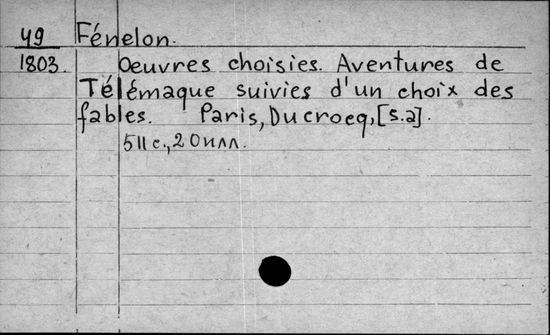 49 Fénelon.
1803. Oeuvres choisies. Aventures de
Télémaque suivies d'un choix des
fables. Paris, Ducrocq, [s.a].
511 с., 20 илл.